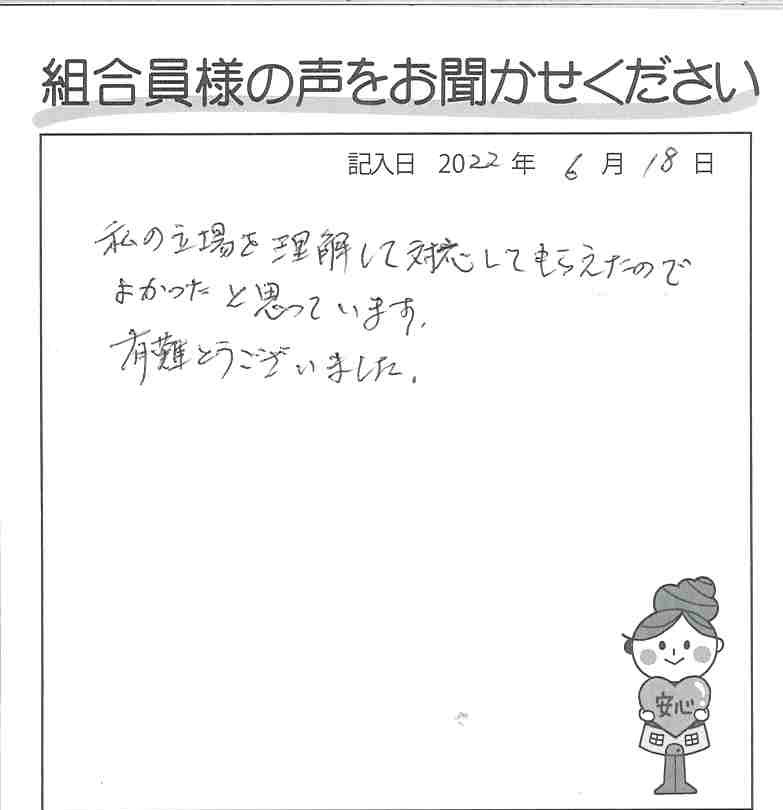 組合員様の声をお聞かせください
記入日 2022 年 6 月 18 日
私の立場を理解して対応してもらえたので
よかったと思っています.
有難とうございました.
安心